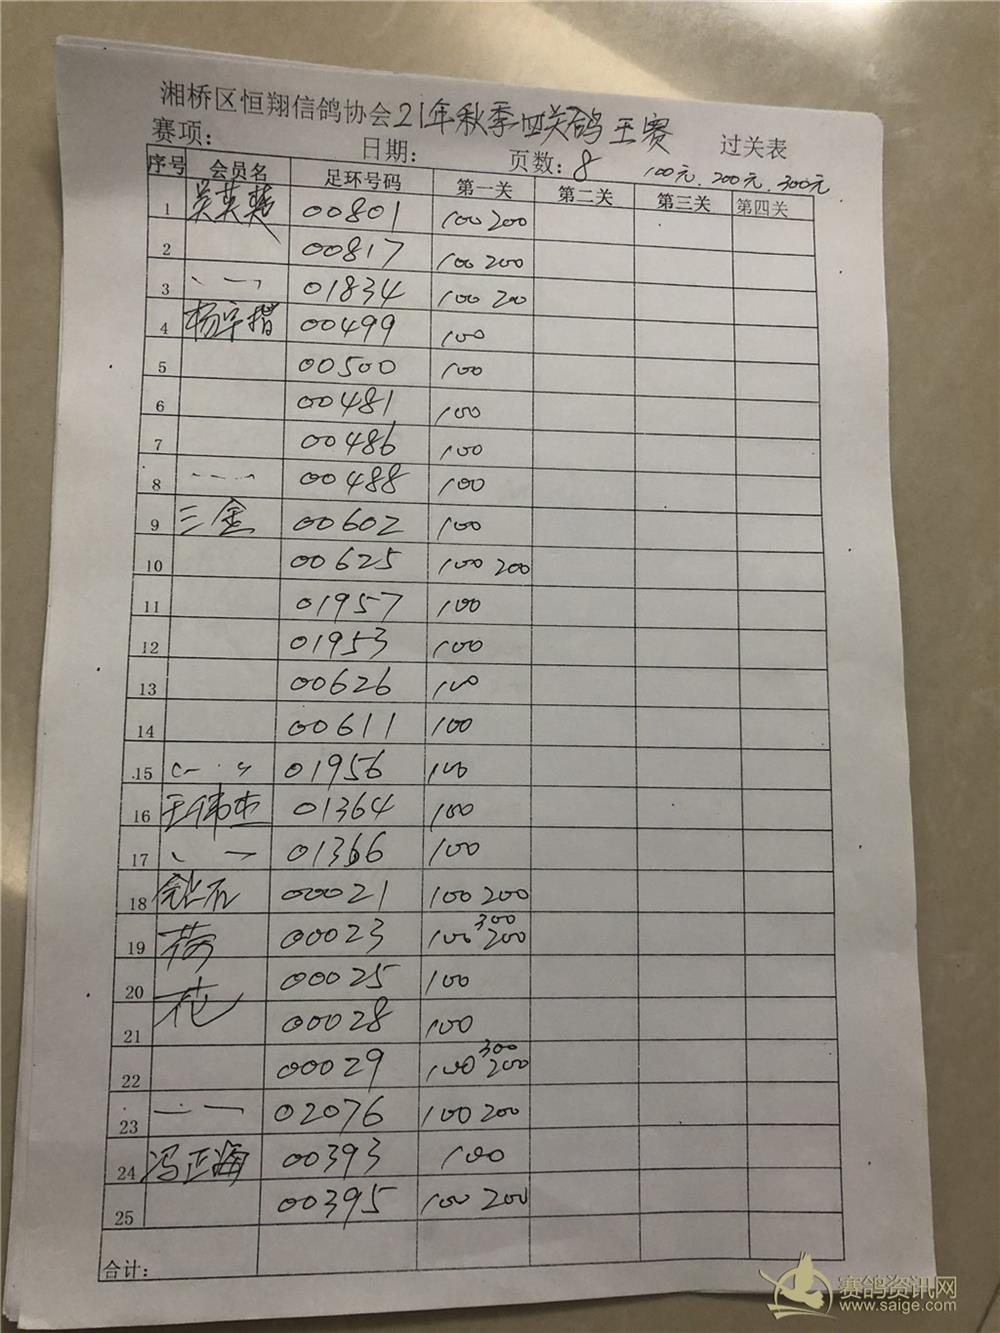 湘桥区恒翔信鸽协会21年秋季四关鸽王赛 过关表
赛项: 日期: 页数:8 100元.200元.300元
序号 会员名 足环号码 第一关 第二关 第三关 第四关
1 吴英楚 00801 100 200
2 00817 100 200
3 01834 100 200
4 杨 00499 100
5 00500 100
6 00481 100
7 00486 100
8 00488 100
9 三金 00602 100
10 00625 100 200
11 01957 100
12 01953 100
13 00626 100
14 00611 100
15 01956 100
16 王伟杰 01364 100
17 01366 100
18 钻石 00021 100 200
19 荷 00023 100 200 300
20 00025 100
花
21 00028 100
22 00029 100 200 300
23 02076 100 200
24 冯正海 00393 100
25 00395 100 200
合计:
赛鸽资讯网
www.saige.com